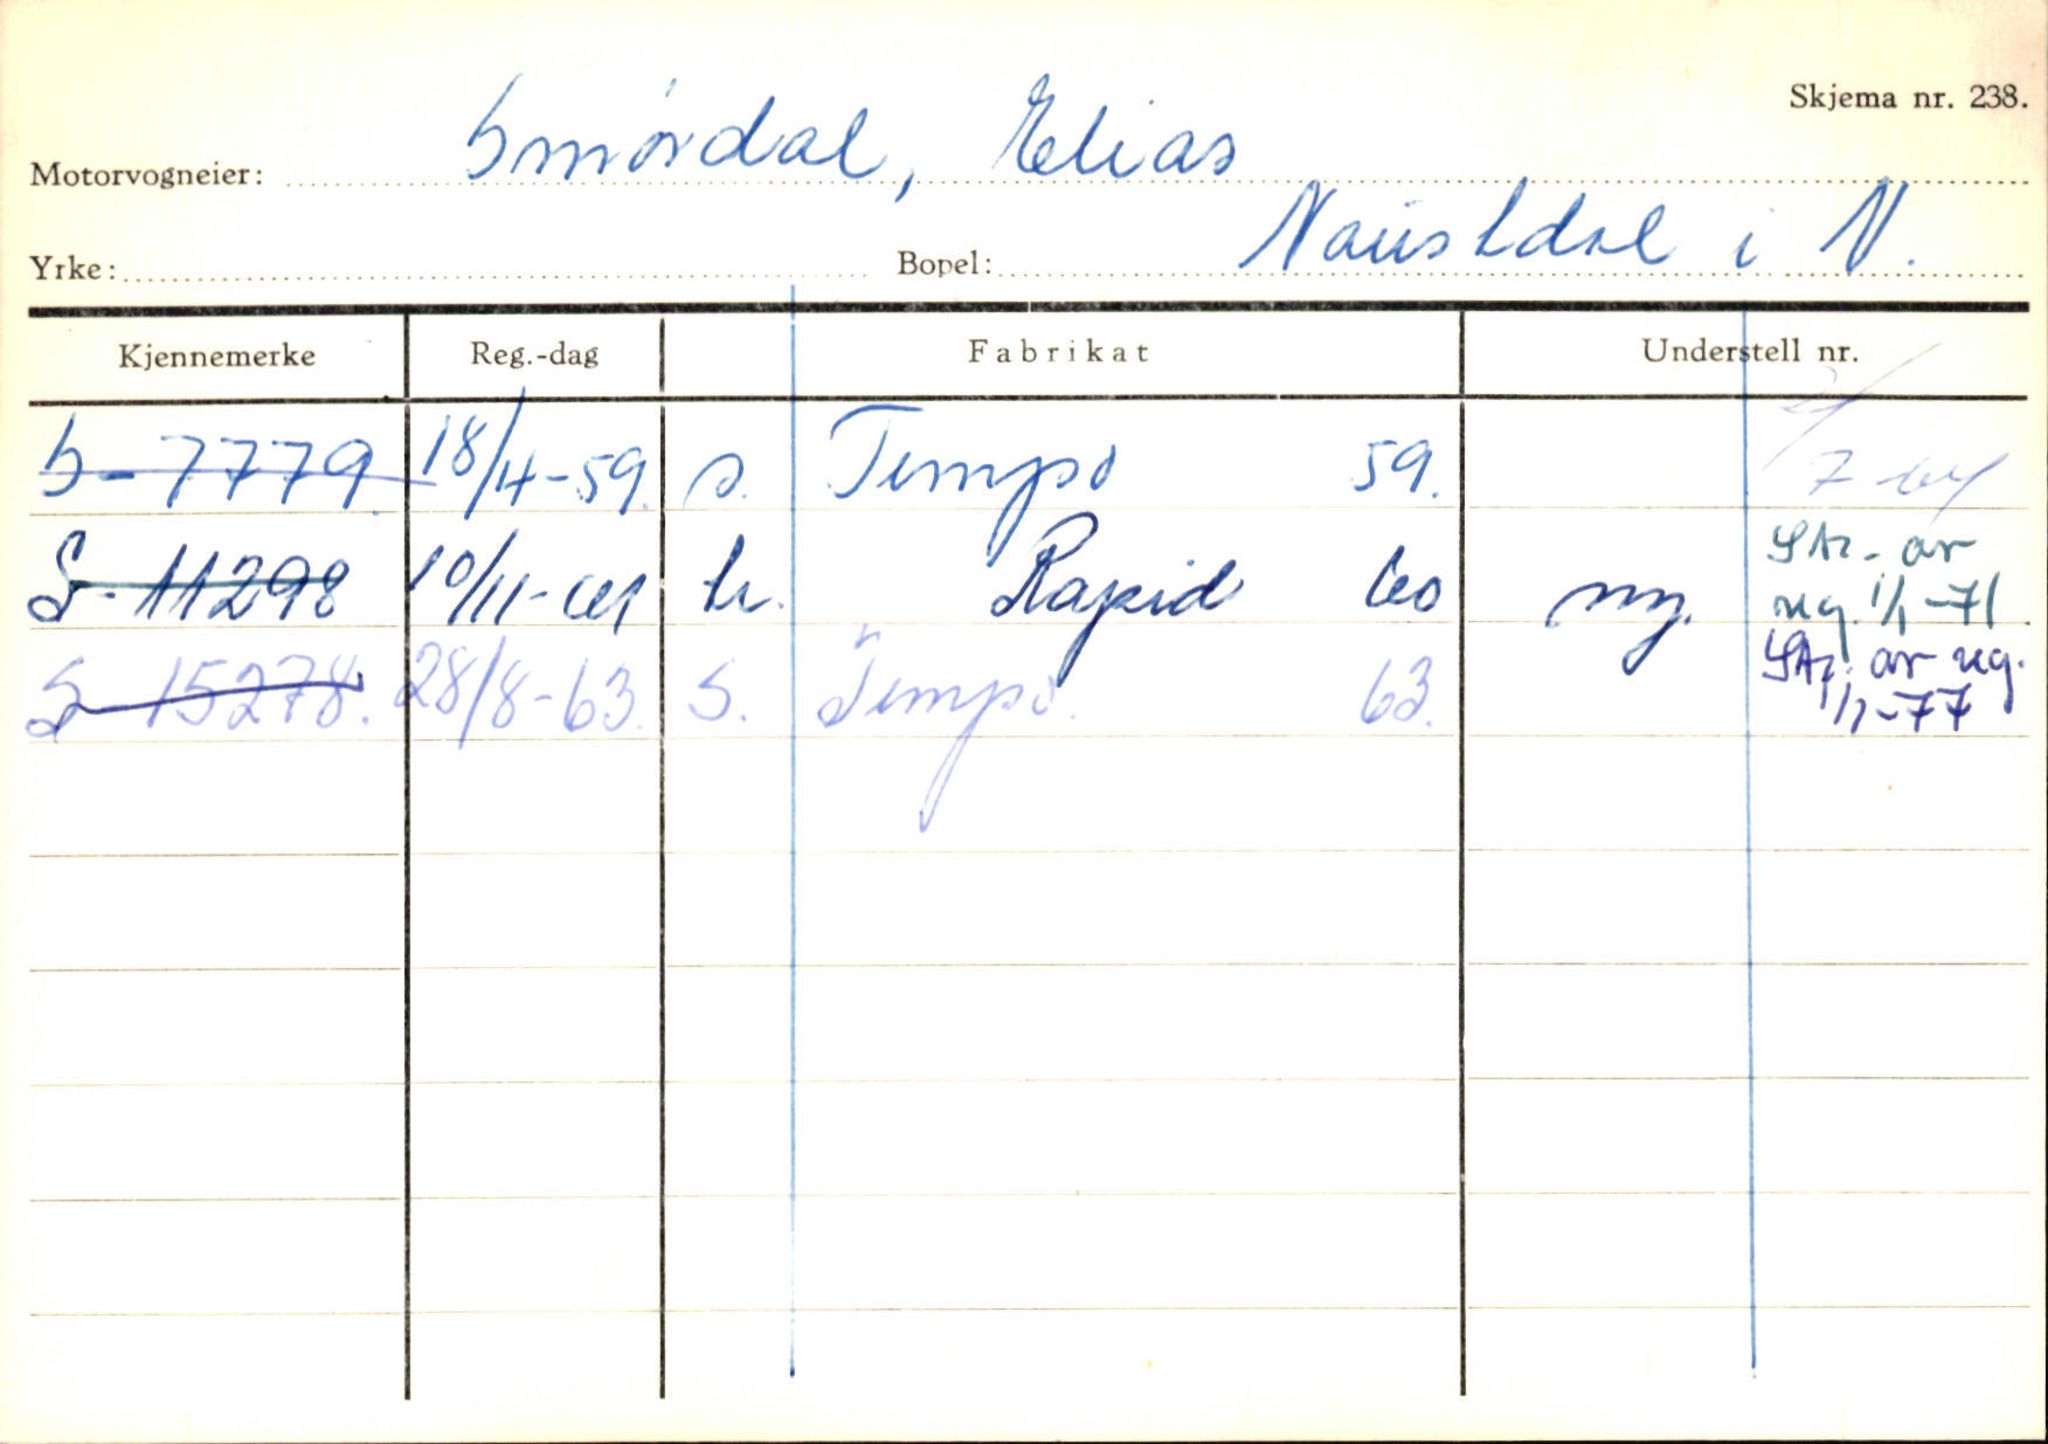 Skjema nr. 238.
Motorvogneier: Smørdal, Elias
Yrke: Bopel: Naustdal i N.
Kjennemerke Reg.-dag Fabrikat Understell nr.
S-7779. 18/4-59. s. Tempo 59. 7-64
S-11298 10/11-61 h. Rapid 60 ny. Str. av
reg. 1/1-71
S-15278. 28/8-63. S. Tempo. 63. Str. av reg.
1/1-77